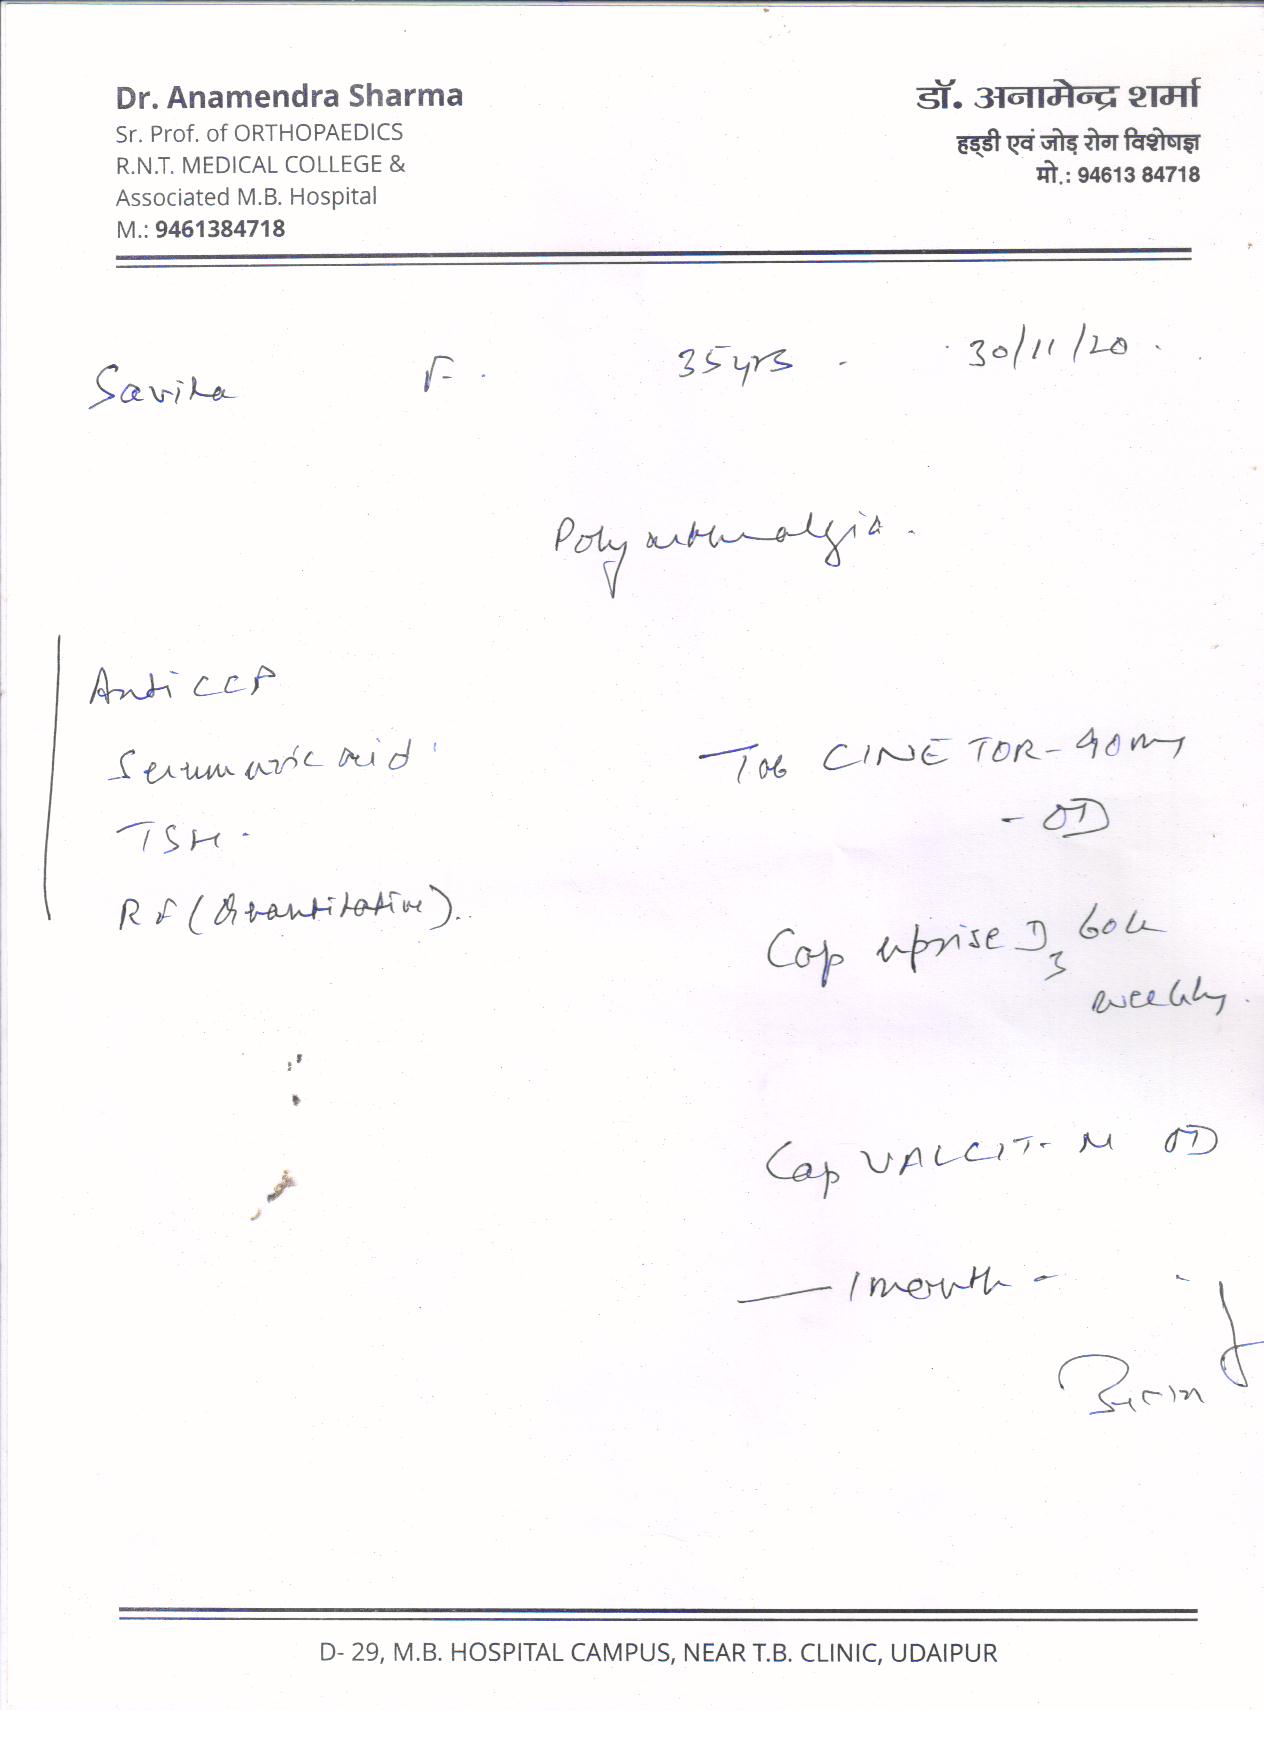 Dr. Anamendra Sharma
Sr. Prof. of ORTHOPAEDICS
R.N.T. MEDICAL COLLEGE &
Associated M.B. Hospital
M.: 9461384718
डॉ. अनामेन्द्र शर्मा
हड्डी एवं जोड़ रोग विशेषज्ञ
मो.: 94613 84718
Savita F. 35 yrs . 30/11/20 .
Polyarthralgia .
Anti CCP
Serum uric acid
TSH .
RF (Quantitative).
Tab CINETOR - 90 mg
- OD
Cap uprise D3 60k
weekly.
Cap VALCIT - M OD
— 1 month -
D- 29, M.B. HOSPITAL CAMPUS, NEAR T.B. CLINIC, UDAIPUR